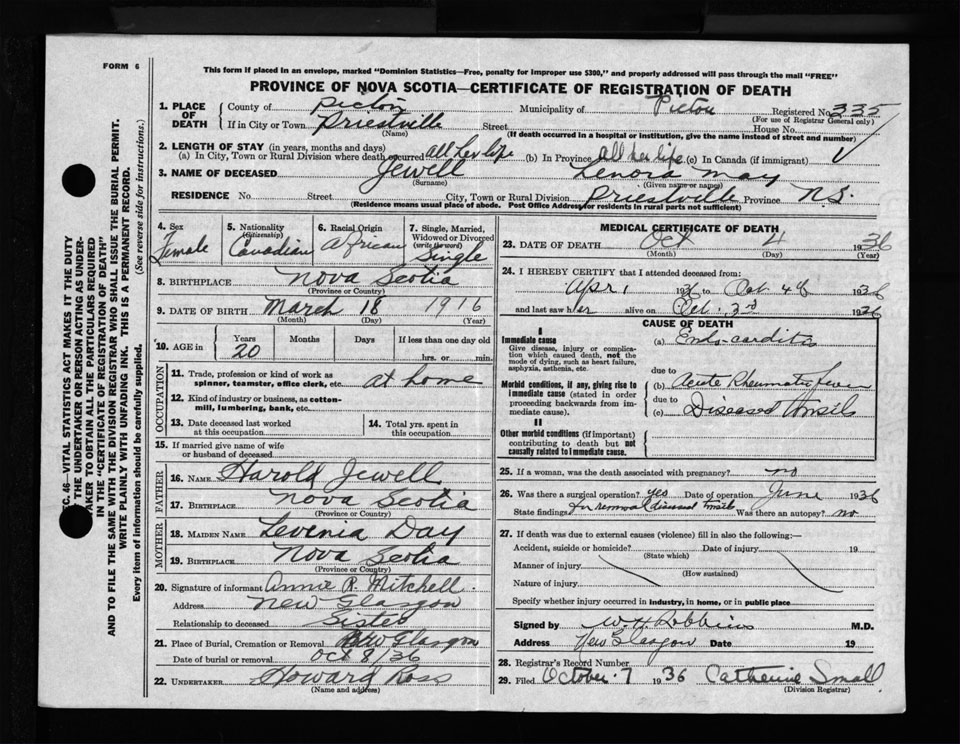 FORM 6
This form if placed in an envelope, marked "Dominion Statistics—Free, penalty for improper use $300," and properly addressed will pass through the mail "FREE"
PROVINCE OF NOVA SCOTIA—CERTIFICATE OF REGISTRATION OF DEATH
1. PLACE OF DEATH County of Pictou Municipality of Pictou Registered No. 335
(For use of Registrar General only)
If in City or Town Priestville Street House No.
(Name) (If death occurred in a hospital or institution, give the name instead of street and number)
2. LENGTH OF STAY (in years, months and days)
(a) In City, Town or Rural Division where death occurred all her life (b) In Province all her life (c) In Canada (if immigrant)
3. NAME OF DECEASED Jewell Lenora May
(Surname) (Given name or names)
RESIDENCE No. Street City, Town or Rural Division Priestville Province N.S.
(Residence means usual place of abode. Post Office Address for residents in rural parts not sufficient)
4. Sex Female
5. Nationality (Citizenship) Canadian
6. Racial Origin African
7. Single, Married, Widowed or Divorced (write the word) Single
8. BIRTHPLACE Nova Scotia
(Province or Country)
9. DATE OF BIRTH March 18 1916
(Month) (Day) (Year)
10. AGE in Years 20 Months Days If less than one day old
hrs. or min.
OCCUPATION
11. Trade, profession or kind of work as spinner, teamster, office clerk, etc. at home
12. Kind of industry or business, as cotton-mill, lumbering, bank, etc.
13. Date deceased last worked at this occupation
14. Total yrs. spent in this occupation
15. If married give name of wife or husband of deceased
FATHER
16. NAME Harold Jewell
17. BIRTHPLACE Nova Scotia
(Province or Country)
MOTHER
18. MAIDEN NAME Levinia Day
19. BIRTHPLACE Nova Scotia
(Province or Country)
20. Signature of informant Annie R. Mitchell
Address New Glasgow
Relationship to deceased Sister
21. Place of Burial, Cremation or Removal New Glasgow
Date of burial or removal Oct 8/36
22. UNDERTAKER Howard Ross
(Name and address)
MEDICAL CERTIFICATE OF DEATH
23. DATE OF DEATH Oct 4 1936
(Month) (Day) (Year)
24. I HEREBY CERTIFY that I attended deceased from:
Apr 1 1936 to Oct. 4th 1936
and last saw her alive on Oct. 3rd 1936
CAUSE OF DEATH
I
Immediate cause
Give disease, injury or complication which caused death, not the mode of dying, such as heart failure, asphyxia, asthenia, etc.
(a) Endo-carditis
due to
Morbid conditions, if any, giving rise to immediate cause (stated in order proceeding backwards from immediate cause).
(b) Acute Rheumatic fever
due to
(c) Diseased tonsils
II
Other morbid conditions (if important) contributing to death but not causally related to immediate cause.
25. If a woman, was the death associated with pregnancy? no
26. Was there a surgical operation? yes Date of operation June 1936
State findings For removal diseased tonsils Was there an autopsy? no
27. If death was due to external causes (violence) fill in also the following:—
Accident, suicide or homicide? Date of injury 19
(State which)
Manner of injury
(How sustained)
Nature of injury
Specify whether injury occurred in industry, in home, or in public place
Signed by W.H. Robbins M.D.
Address New Glasgow Date 19
28. Registrar's Record Number
29. Filed October 7 1936 Catherine Small
(Division Registrar)
SEC. 46—VITAL STATISTICS ACT MAKES IT THE DUTY
OF THE UNDERTAKER OR PERSON ACTING AS UNDER-
TAKER TO OBTAIN ALL THE PARTICULARS REQUIRED
IN THE "CERTIFICATE OF REGISTRATION OF DEATH"
AND TO FILE THE SAME WITH THE DIVISION REGISTRAR WHO SHALL ISSUE THE BURIAL PERMIT.
WRITE PLAINLY WITH UNFADING INK. THIS IS A PERMANENT RECORD.
Every item of information should be carefully supplied. (See reverse side for instructions.)